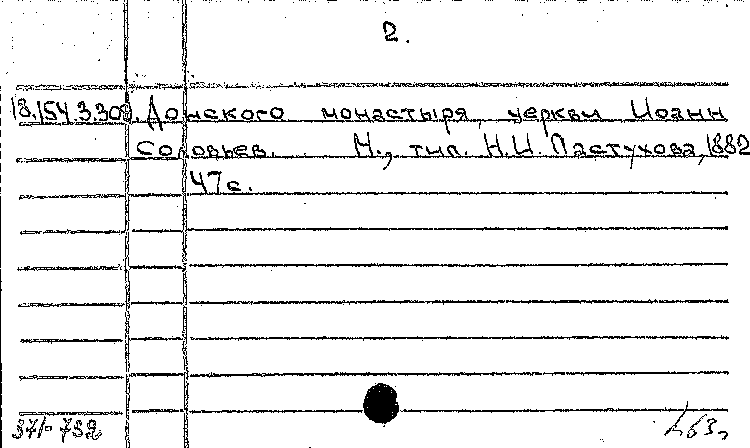 2.
18.154.3.308. Донского монастыря, церкви Иоанн
Соловьев. М., тип. Н.И. Пастухова, 1882
47с.
371-732